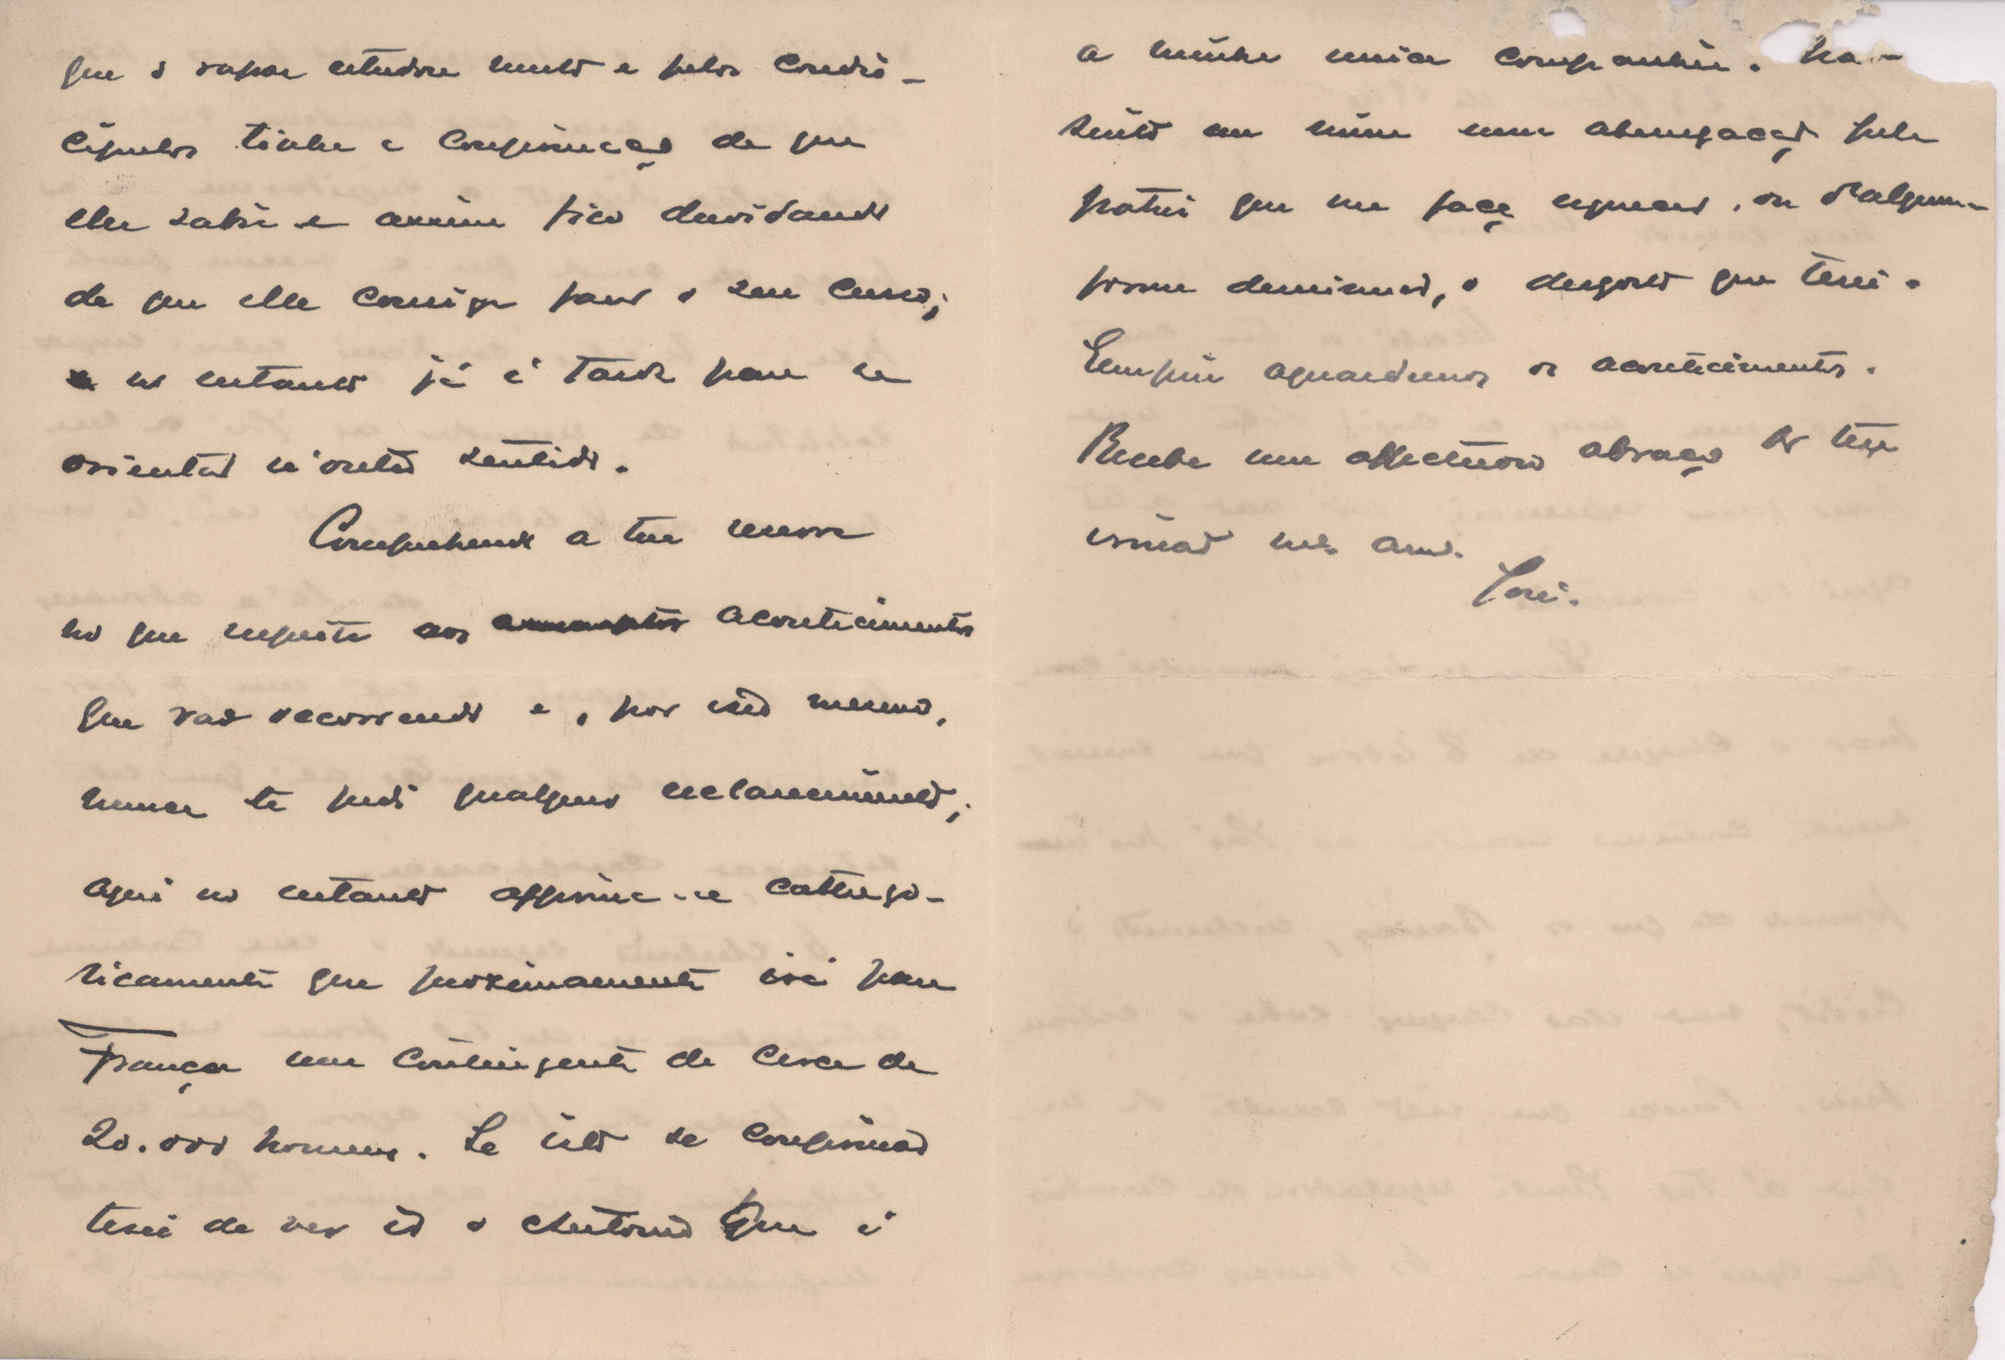 que o rapaz estudou muito e pelos condis-
cipulos tinha a confirmação de que
elle sabia e assim fico duvidando
de que elle consiga fazer o seu curso;
no entanto já é tarde para se
orientar n'outro sentido.
Comprehendo a tua reserva
no que respeita aos acontecimentos
que vão decorrendo e, por isso mesmo,
nunca te pedi qualquer esclarecimento;
aqui no entanto affirma-se cathego-
ricamente que proximamente irá para
França um contingente de cerca de
20.000 homens. Se isto se confirmar
terei de ver ir o Antonio que é
a minha unica companhia. Não
sinto em mim uma abnegação pela
patria que me faça esquecer, ou d'alguma
forma diminuir, o desgosto que terei.
Emfim aguardemos os acontecimentos.
Recebe um affectuoso abraço do teu
irmão mto. amo.
José.